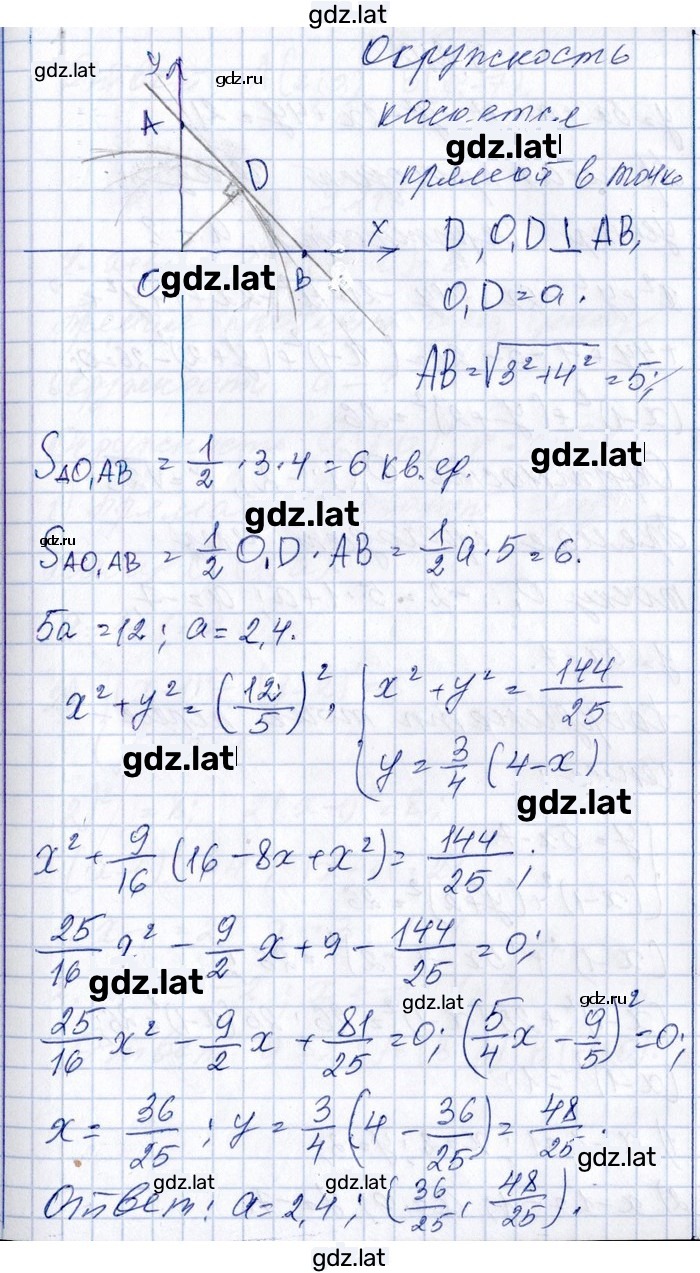 gdz.lat
Окружность
gdz.lat
gdz.ru
y
касается
A
gdz.lat
D
прямой в точке
x
D, O₁D ⊥ AB,
O₁
gdz.lat
B
O₁D = a.
AB = √(3² + 4²) = 5;
S△O₁AB = 1/2 · 3 · 4 = 6 кв. ед.
gdz.lat
gdz.lat
gdz.ru
S△O₁AB = 1/2 O₁D · AB = 1/2 a · 5 = 6.
5a = 12; a = 2,4.
x² + y² = (12/5)²; { x² + y² = 144/25
y = 3/4 (4 - x)
gdz.lat
gdz.lat
x² + 9/16 (16 - 8x + x²) = 144/25;
25/16 x² - 9/2 x + 9 - 144/25 = 0;
gdz.lat
gdz.lat
gdz.ru
25/16 x² - 9/2 x + 81/25 = 0; (5/4 x - 9/5)² = 0;
x = 36/25; y = 3/4 (4 - 36/25) = 48/25.
gdz.lat
gdz.lat
gdz.lat
Ответ: a = 2,4; (36/25; 48/25).
gdz.lat